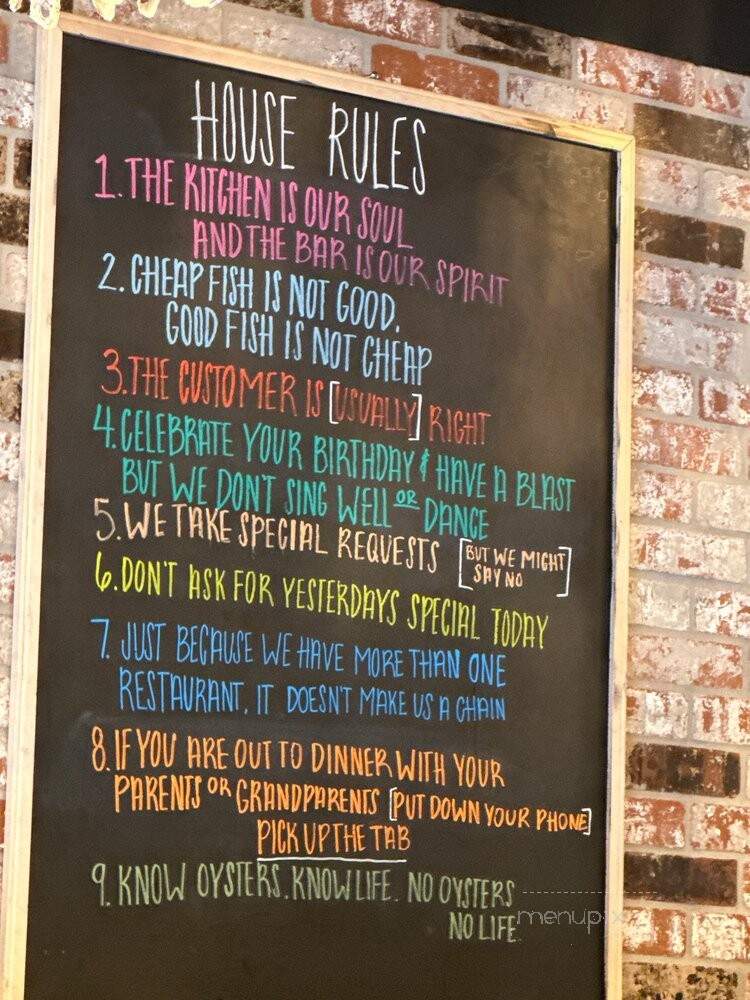 HOUSE RULES
1. THE KITCHEN IS OUR SOUL
AND THE BAR IS OUR SPIRIT
2. CHEAP FISH IS NOT GOOD.
GOOD FISH IS NOT CHEAP
3. THE CUSTOMER IS [USUALLY] RIGHT
4. CELEBRATE YOUR BIRTHDAY & HAVE A BLAST
BUT WE DON'T SING WELL OR DANCE
5. WE TAKE SPECIAL REQUESTS [BUT WE MIGHT
SAY NO]
6. DON'T ASK FOR YESTERDAYS SPECIAL TODAY
7. JUST BECAUSE WE HAVE MORE THAN ONE
RESTAURANT, IT DOESN'T MAKE US A CHAIN
8. IF YOU ARE OUT TO DINNER WITH YOUR
PARENTS OR GRANDPARENTS [PUT DOWN YOUR PHONE]
PICK UP THE TAB
9. KNOW OYSTERS. KNOW LIFE. NO OYSTERS
NO LIFE.